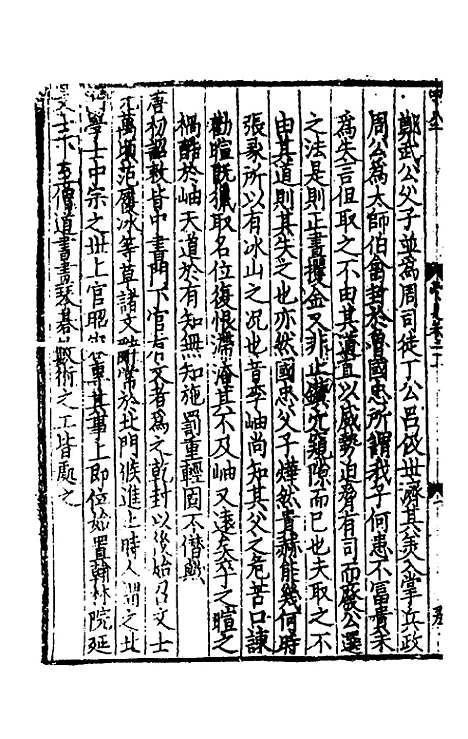 鄭武公父子並爲周司徒丁公呂伋世濟其美入掌兵政
周公爲太師伯禽封於魯國忠所謂我子何患不富貴未
爲失言但取之不由其道直以威勢迫脅有司而廢公選
之法是則正晝攫金又非止鑽穴窺隙而已也夫取之不
由其道則其失之也亦然國忠父子燁然貴赫能幾何時
張彖所以有冰山之况也昔李岫尚知其父之危苦口諫
勸暄既獵取名位復恨濡淹其不及岫又遠矣卒之暄之
禍酷於岫天道於有知無知施罰重輕固不僣歟
唐初詔敕皆中書門下官有文者爲之乾封以後始召文士
元萬頃范履冰等草諸文辭常於北門候進止時人謂之北
門學士中宗之世上官昭容專其事上即位始置翰林院延
文士下至僧道書畫琴棊數術之工皆處之